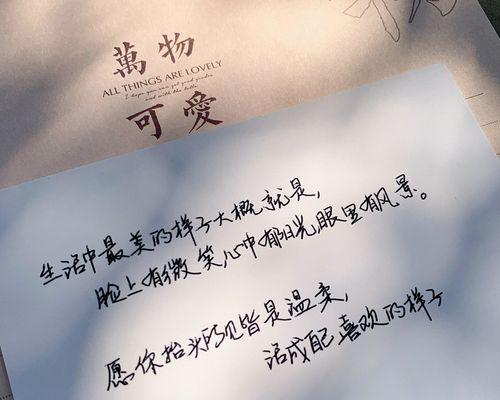 萬物
ALL THINGS ARE LOVELY
可愛
生活中最美的样子大概就是,
脸上有微笑心中有阳光,眼里有风景。
愿你抬头所见皆是温柔,
活成自己喜欢的样子